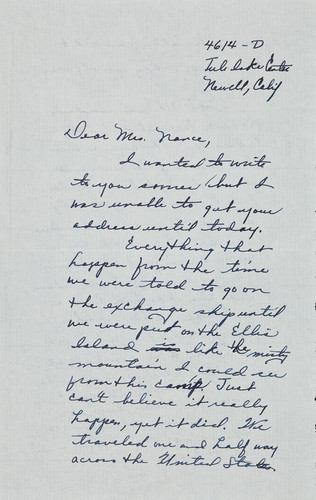 4614-D
Tulelake Center
Newell, Calif
Dear Mrs. Nance,
I wanted to write
to you sooner but I
was unable to get your
address until today.
Everything that
happen from the time
we were told to go on
the exchange ship until
we were put on the Ellis
Island like the misty
mountain I could see
from this camp. Just
can't believe it really
happen, yet it did. We
traveled one and half way
across the United States.